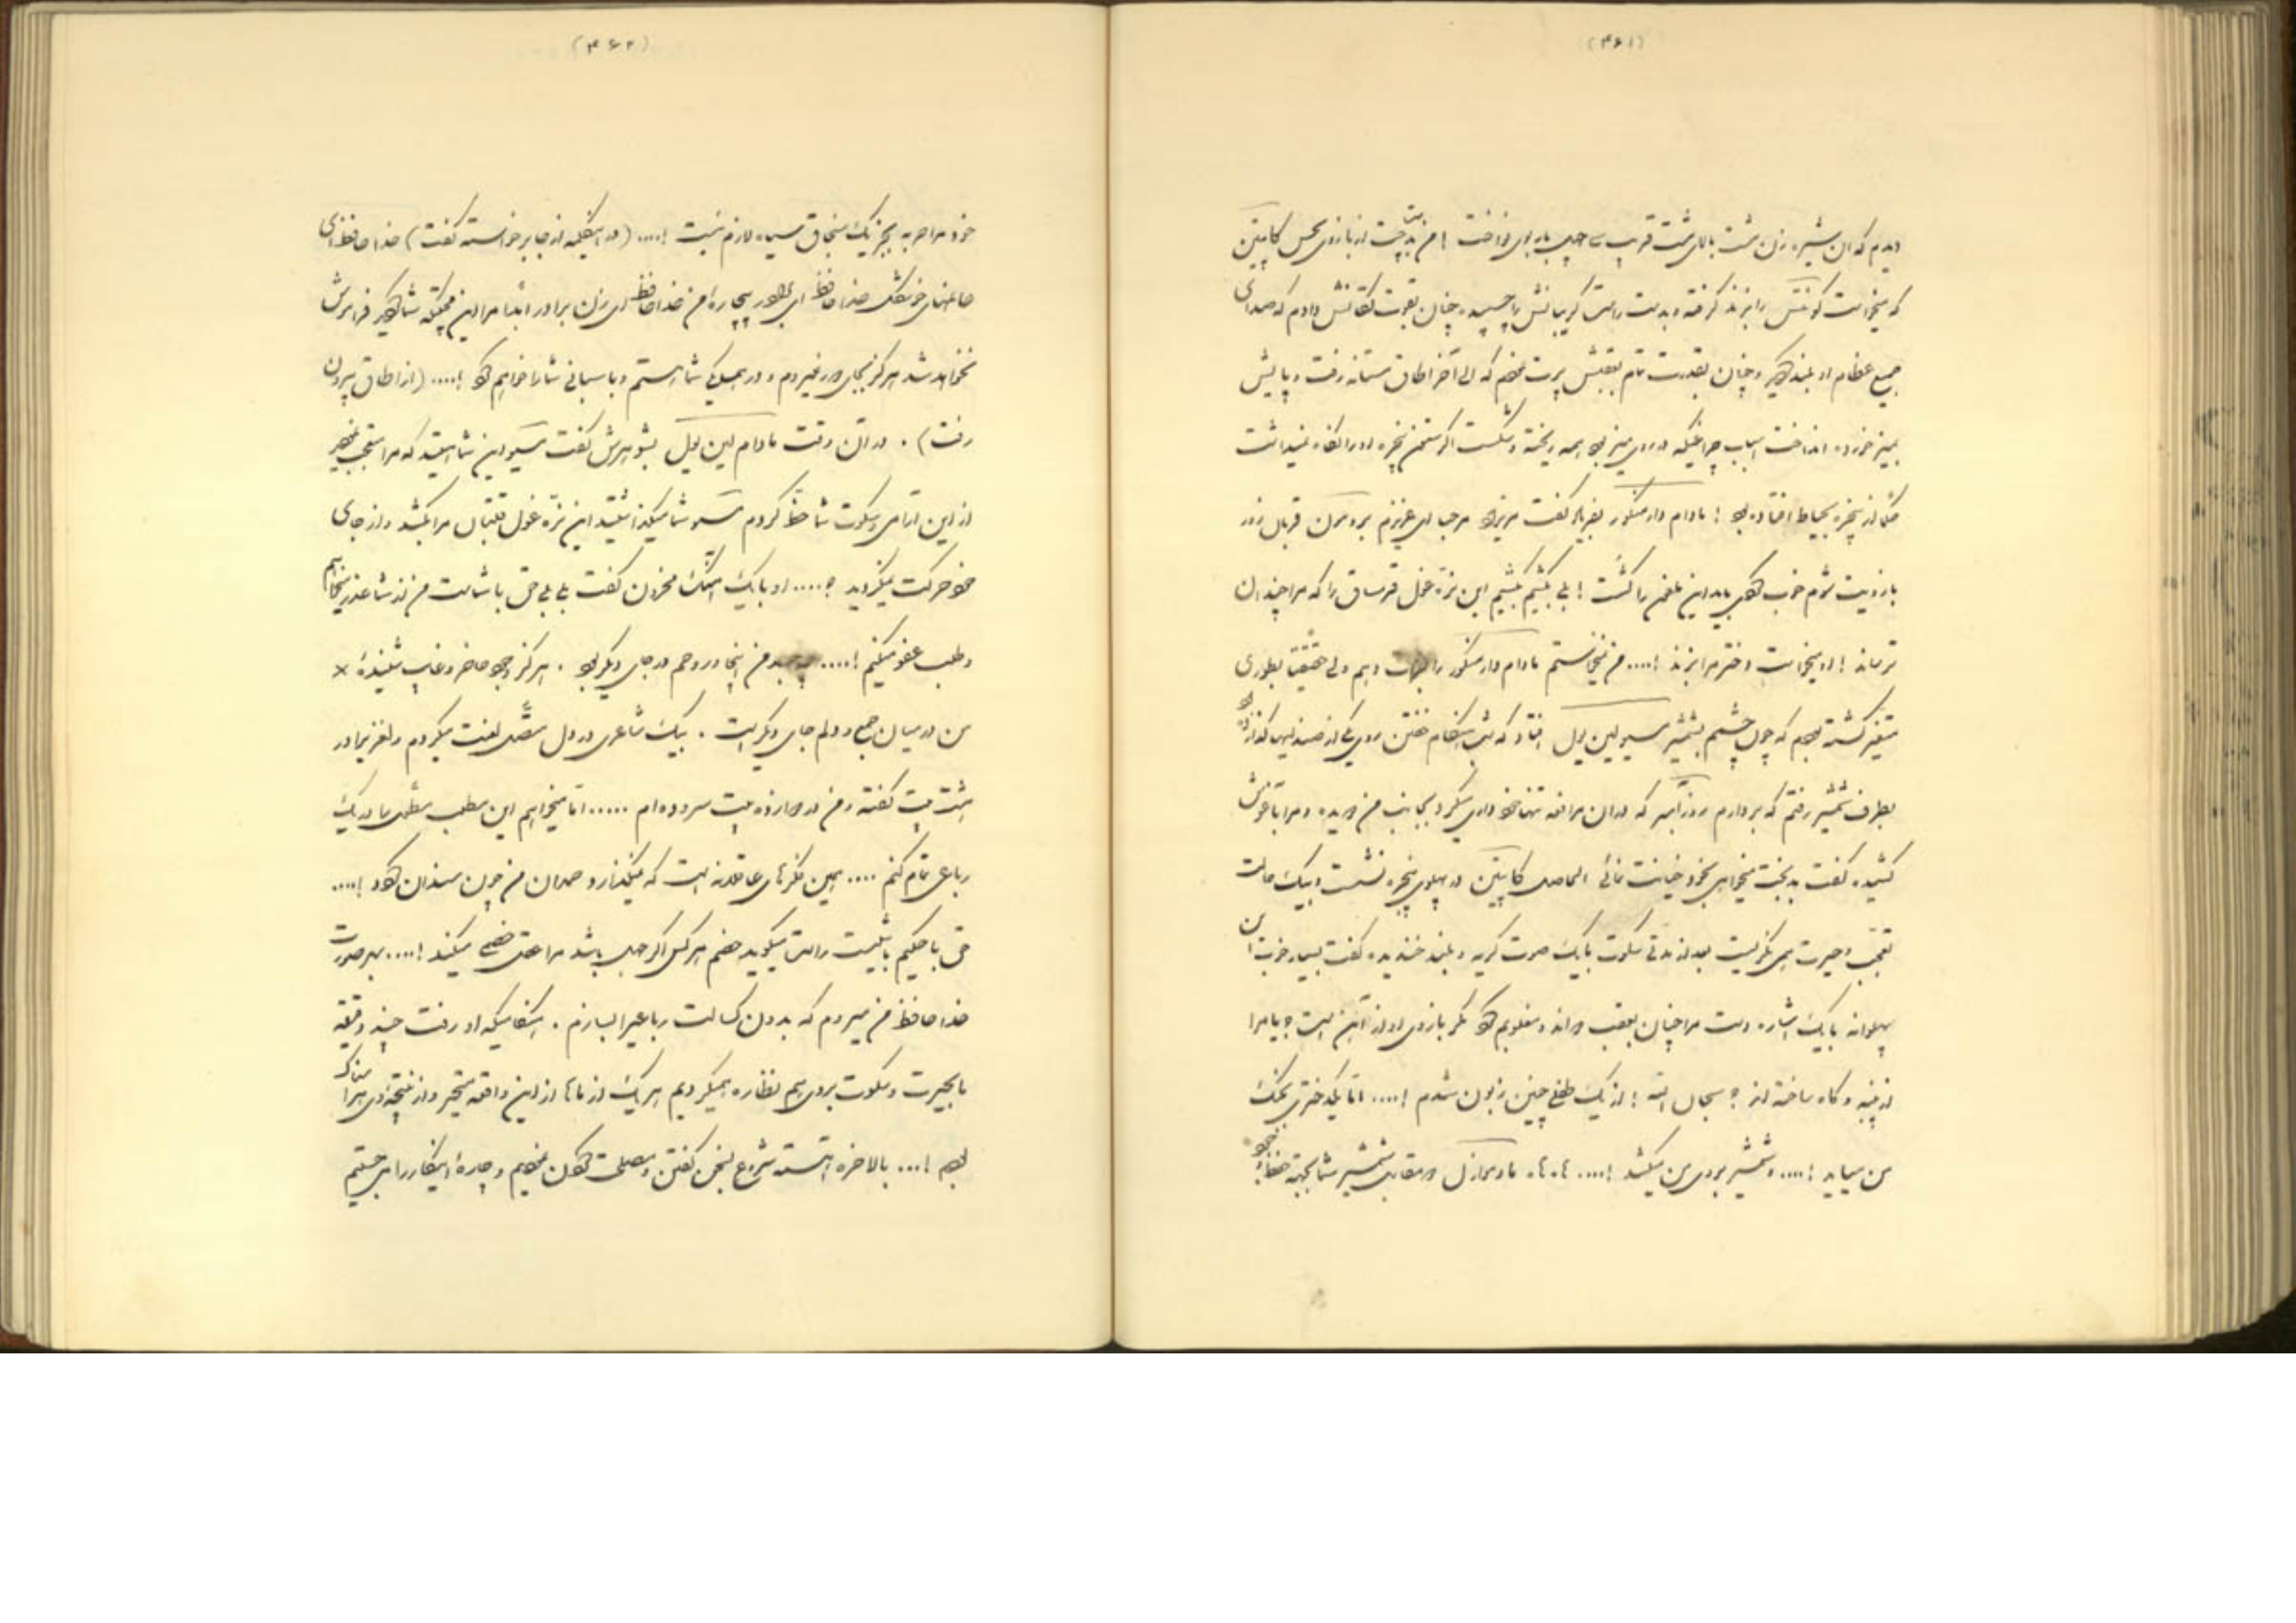 (۴۶۱)
دیدم که آن شیره زن مشت بالای مشت قریب سی چهل بار بوی نواخت ! من بدست چپ از بازوی نحس کاپیتن
که میخواست گوشش را بزند گرفته و بدست راست گریبانش را چسبیده چنان بقوت تکانش دادم که صدای
جمیع عظام او بلند گردید و چنان بقدرت تمام بعقبش پرت نمودم که الی آخر اطاق مستانه رفت و پایش
بمیز خورده انداخت اسباب چراغیکه در روی میز بود همه ریخته و شکست اگر ستون پنجره او را نگاه نمیداشت
حکماً از پنجره بحیاط افتاده بود ! مادام دارمنکور بفریاد گفت مریزاد مرحبا ای عزیزم برادرمن قربان زور
بازویت شوم خوب کردی باید این ملعون را کشت ! بلی بکشیم بکشیم این نره غول قرمساق را که مرا چندان
ترساند ! او میخواست دختر مرا بزند !.... من میخواستم مادام دارمنکور را جواب دهم ولی حقیقتاً بطوری
متغیر گشته بودم که چون چشمم بشمشیر مسیو لین یول افتاد که شب هنگام خفتن روی یکی از صندلیها گذارده بود
بطرف شمشیر رفتم که بردارم روزآمبر که در آن مرافعه تنها خودداری میکرد بجانب من دویده و مرا بآغوش
کشیده گفت بدبخت میخواهی بخود خیانت نمائی الحاصل کاپیتن در پهلوی پنجره نشست و بیک حالت
تعجب و حیرت همی نگریست بعد از مدتی سکوت با یک صوت کریه و بلند خندیده گفت بسیار خوب این
پهلوانه با یک اشاره دست مرا چنان بعقب راند و مغلوبم نمود مگر بازوی او از آهن است ؟ یا مرا
از پنبه و کاه ساخته اند ؟ سبحان الله ! از یک طفلی چنین زبون شدم !.... اما یکدختری بجنگ
من میاید !.... و شمشیر بروی من میکشد !.... ها، ها، مادموازل در مقابل شمشیر شما بجهة حفظ وجود
(۴۶۲)
خود مرا حربه بجز یک سنجاق سیاه لازم نیست !.... (در اینکلمه از جا برخواسته گفت) خدا حافظ ای
خانمهای خوشگل خدا حافظ ای پدر بیچارهٔ من خدا حافظ ای زن برادر ابداً مرا این محبتکه شما کردید فراموش
نخواهد شد هرگز بجای دور نمیروم و در همسایگی شما هستم و پاسبانی شما را خواهم نمود !.... (از اطاق بیرون
رفت) . در آن وقت مادام لین یول بشوهرش گفت مسیو این شمائید که مرا متعجب نمودید
از این آرامی و سکوت شما حظ کردم مسیو شما میگذاشتید این نره غول قلتبان مرا بکشد و از جای
خود حرکت نمیکردید ؟.... او با یک آهنگ محزون گفت بلی بلی حق با شماست من از شما عذر میخواهم
و طلب عفو میکنم !.... من اینجا و روحم در جای دیگر بود . هرگز وجود حاضر و غایب شنیدهٔ ×
من در میان جمع و دلم جای دیگر است . بیک شاعری در دل متصل لعنت میکردم
هشت بیت گفته و من در دوازده بیت سروده ام ..... اما میخواهم این مطلب را در یک
رباعی تمام کنم .... همین فکرهای عاقلانه است که میگذارد و صبر من چون سندان نمود !....
حق با حکیم بالینست راستی میگوید هضم هرکس اگر جبل باشد مرا عقل هضم میکند !.... بهرصورت
خدا حافظ من میروم که بدون کسالت رباعی را بسازم . هنگامیکه او رفت چند دقیقه
با حیرت و سکوت بروی هم نظاره میکردیم هریک از ماها از این واقعه متحیر و از نتیجهٔ وی هراسناک
بودیم !... بالاخره آهسته شروع بسخن گفتن و مصلحت کردن نمودیم و چارهٔ اینکار را می جستیم